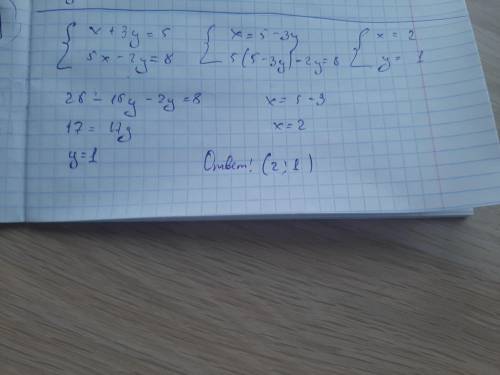 { x + 3y = 5 { x = 5 - 3y { x = 2
5x - 2y = 8 5(5 - 3y) - 2y = 8 y = 1
25 - 15y - 2y = 8 x = 5 - 3
17 = 17y x = 2
y = 1 Ответ: (2; 1)